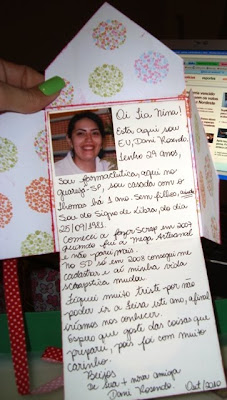 Oi Tia Nina!
Está aqui sou
EU, Dani Rosendo.
Tenho 29 anos,
Sou farmacêutica, aqui no
Guarujá-SP, sou casada com o
Thomas há 1 ano. Sem filhos, ainda
Sou do Signo de Libra, do dia
25/09/1981.
Comecei a fazer Scrap em 2007
quando fui a Mega Artesanal
e não parei mais.
No SD só em 2008 consegui me
cadastrar e aí minha vida
scrapística mudou.
Fiquei muito triste por não
poder ir a feira este ano, afinal
iríamos nos conhecer.
Espero que goste das coisas que
preparei, pois foi com muito
carinho.
Beijos
De sua + nova amiga
Dani Rosendo. Out/2010